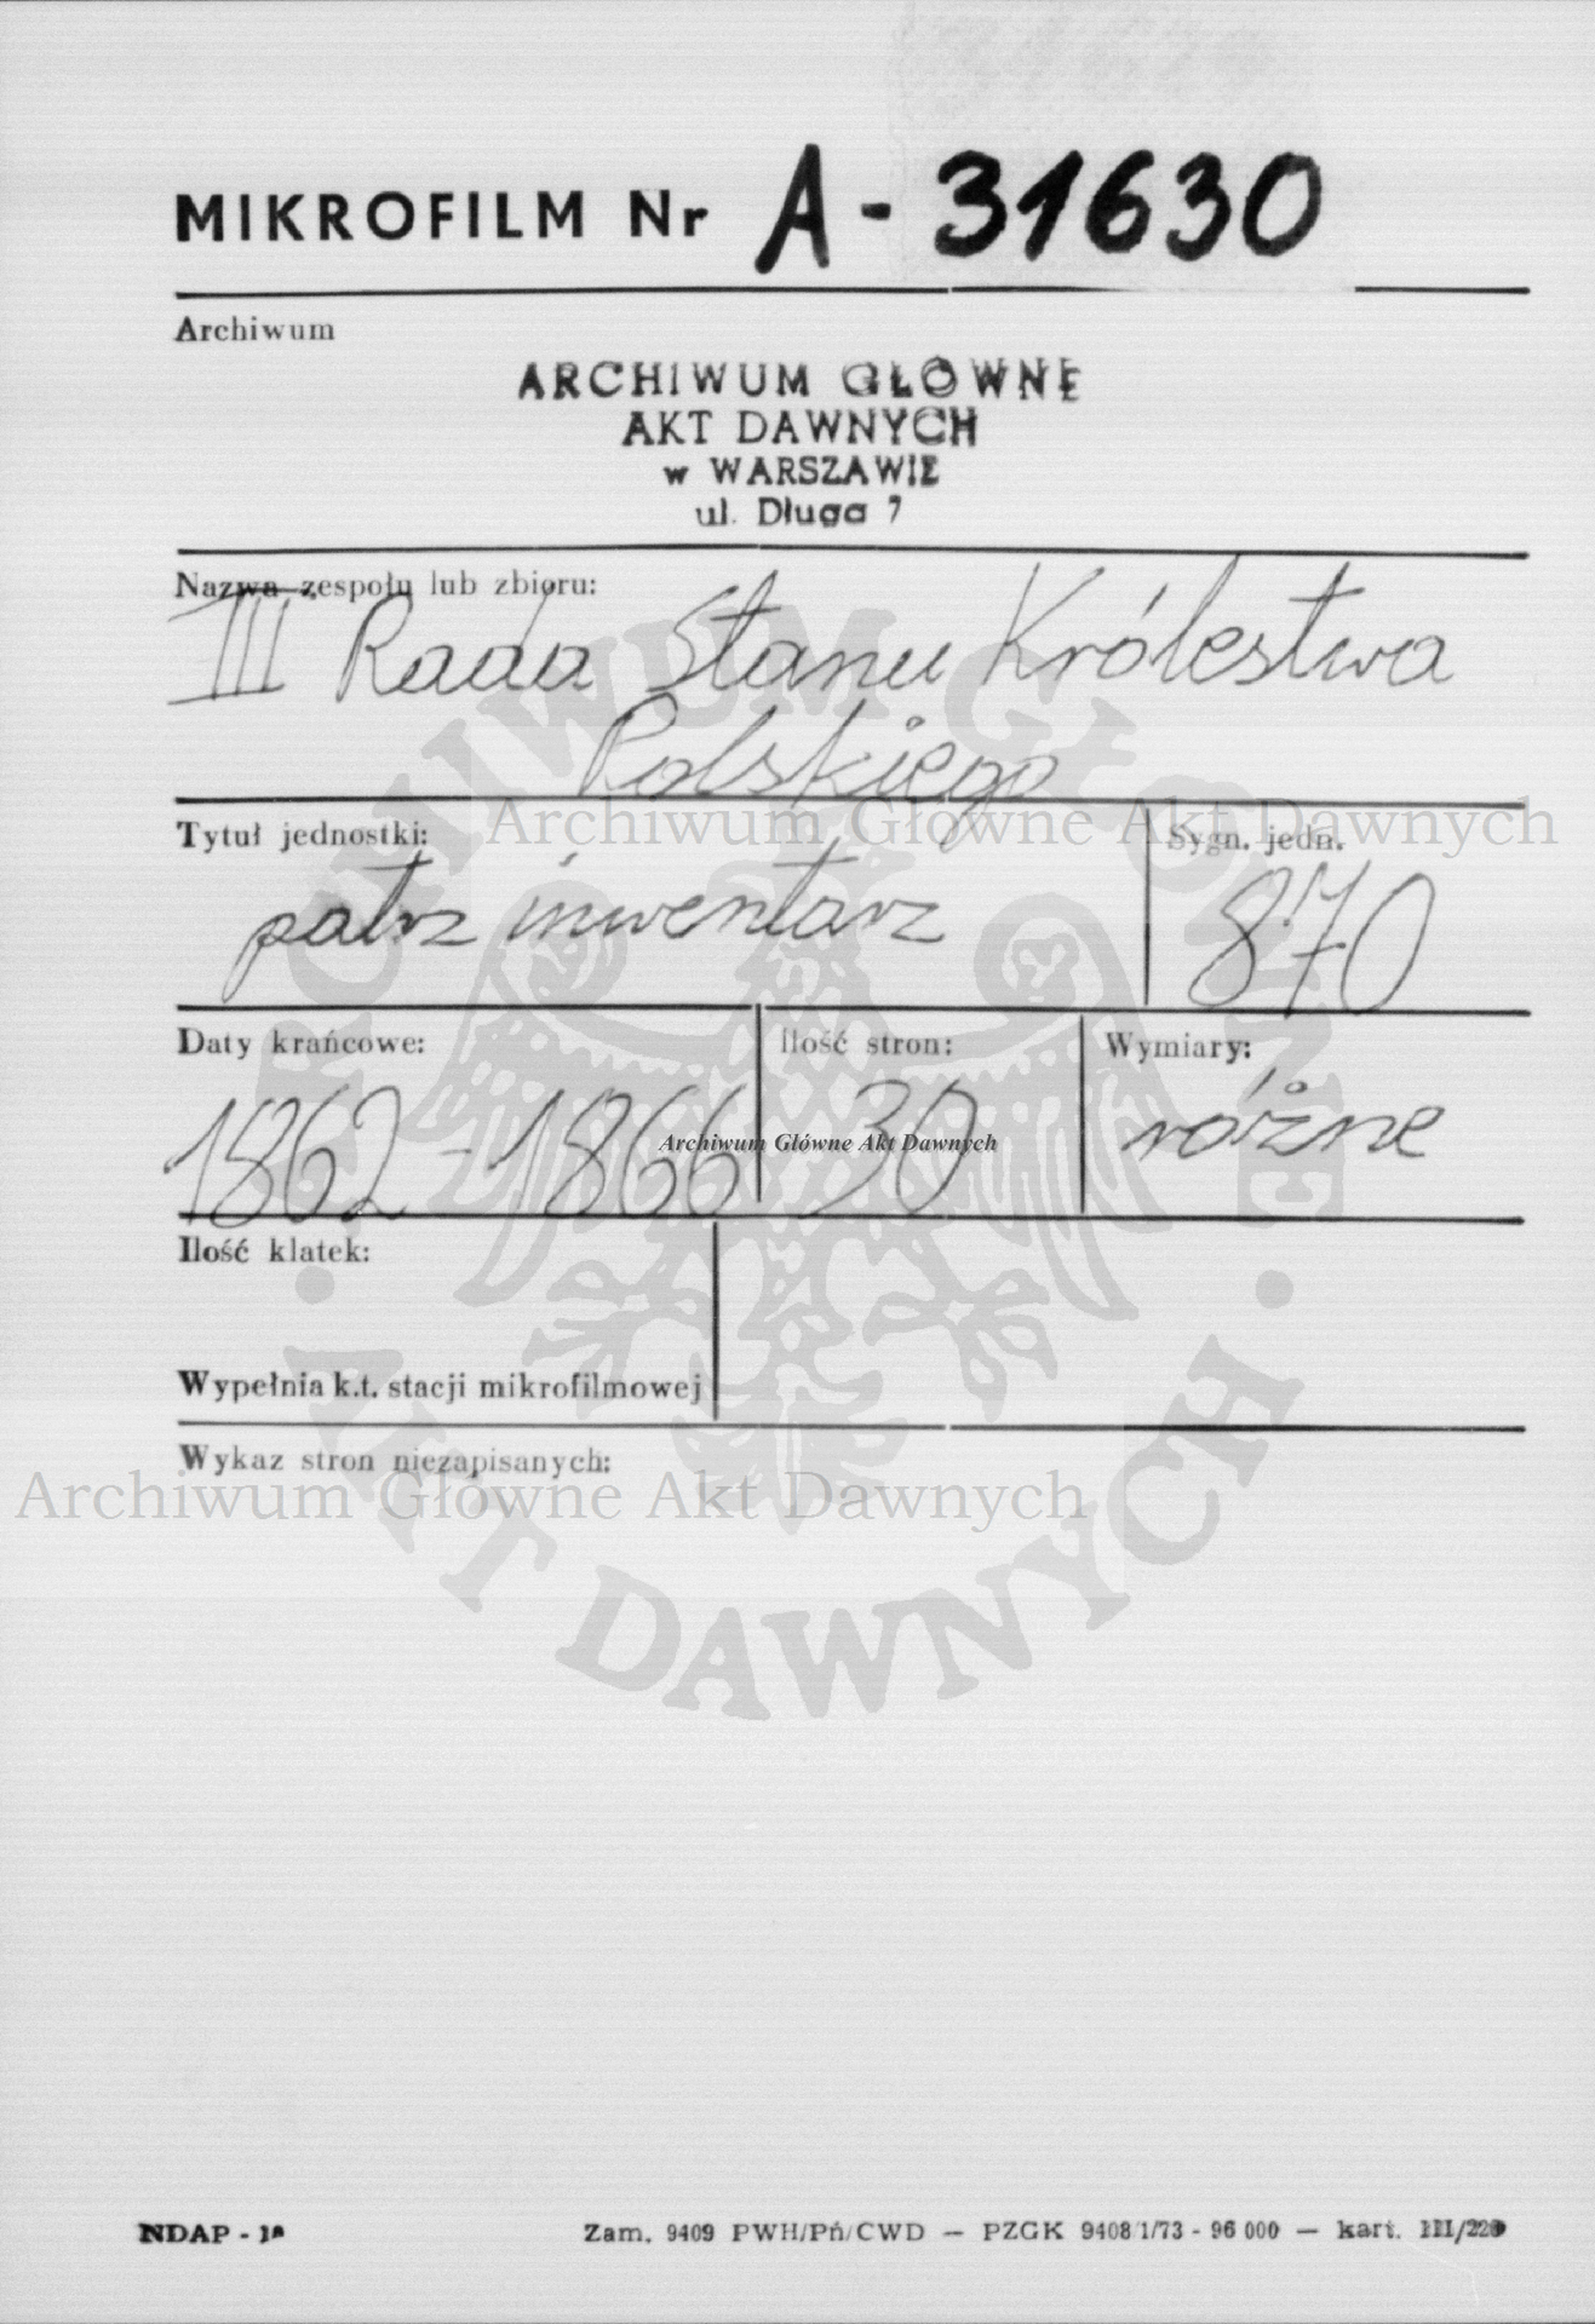 MIKROFILM Nr A - 31630
Archiwum
ARCHIWUM GŁÓWNE
AKT DAWNYCH
w WARSZAWIE
ul. Długa 7
Nazwa zespołu lub zbioru:
III Rada Stanu Królestwa
Polskiego
Archiwum Główne Akt Dawnych
Tytuł jednostki: Sygn. jedn.
patrz inwentarz 870
Daty krańcowe: Ilość stron: Wymiary:
1862 - 1866 30 różne
Archiwum Główne Akt Dawnych
Ilość klatek:
Wypełnia k.t. stacji mikrofilmowej
Wykaz stron niezapisanych:
Archiwum Główne Akt Dawnych
ARCHIWUM GŁÓWNE · AKT DAWNYCH ·
NDAP - 1a Zam. 9409 PWH/Pń/CWD — PZGK 9408/1/73 - 96 000 — kart. III/220